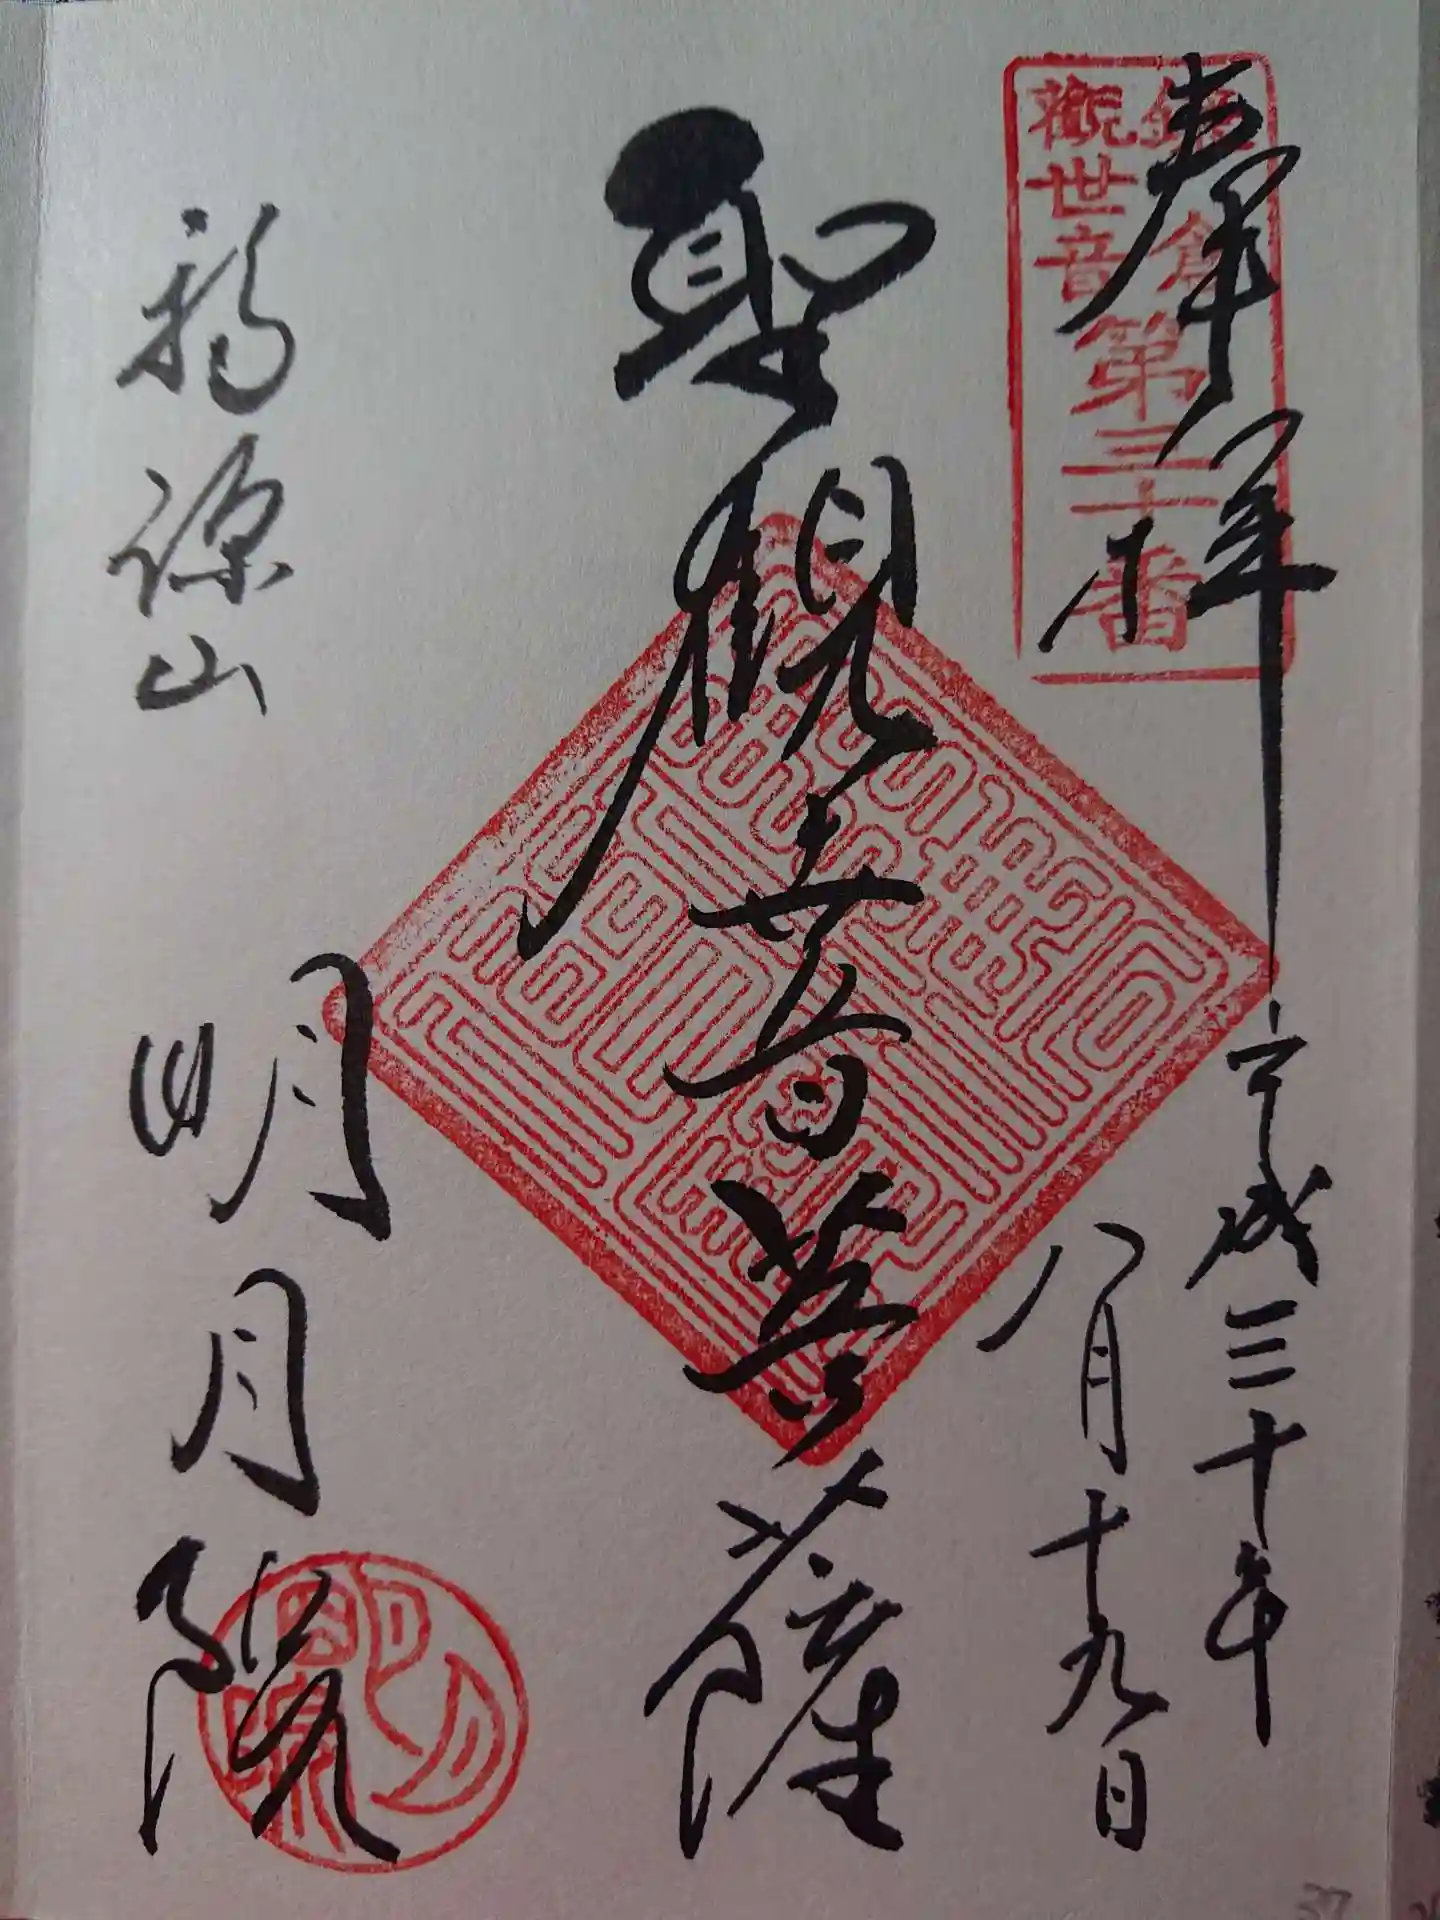 奉拝
鎌倉
観世音
第三十番
平成三十年
八月十九日
聖観世音菩薩
福源山
明月院
37